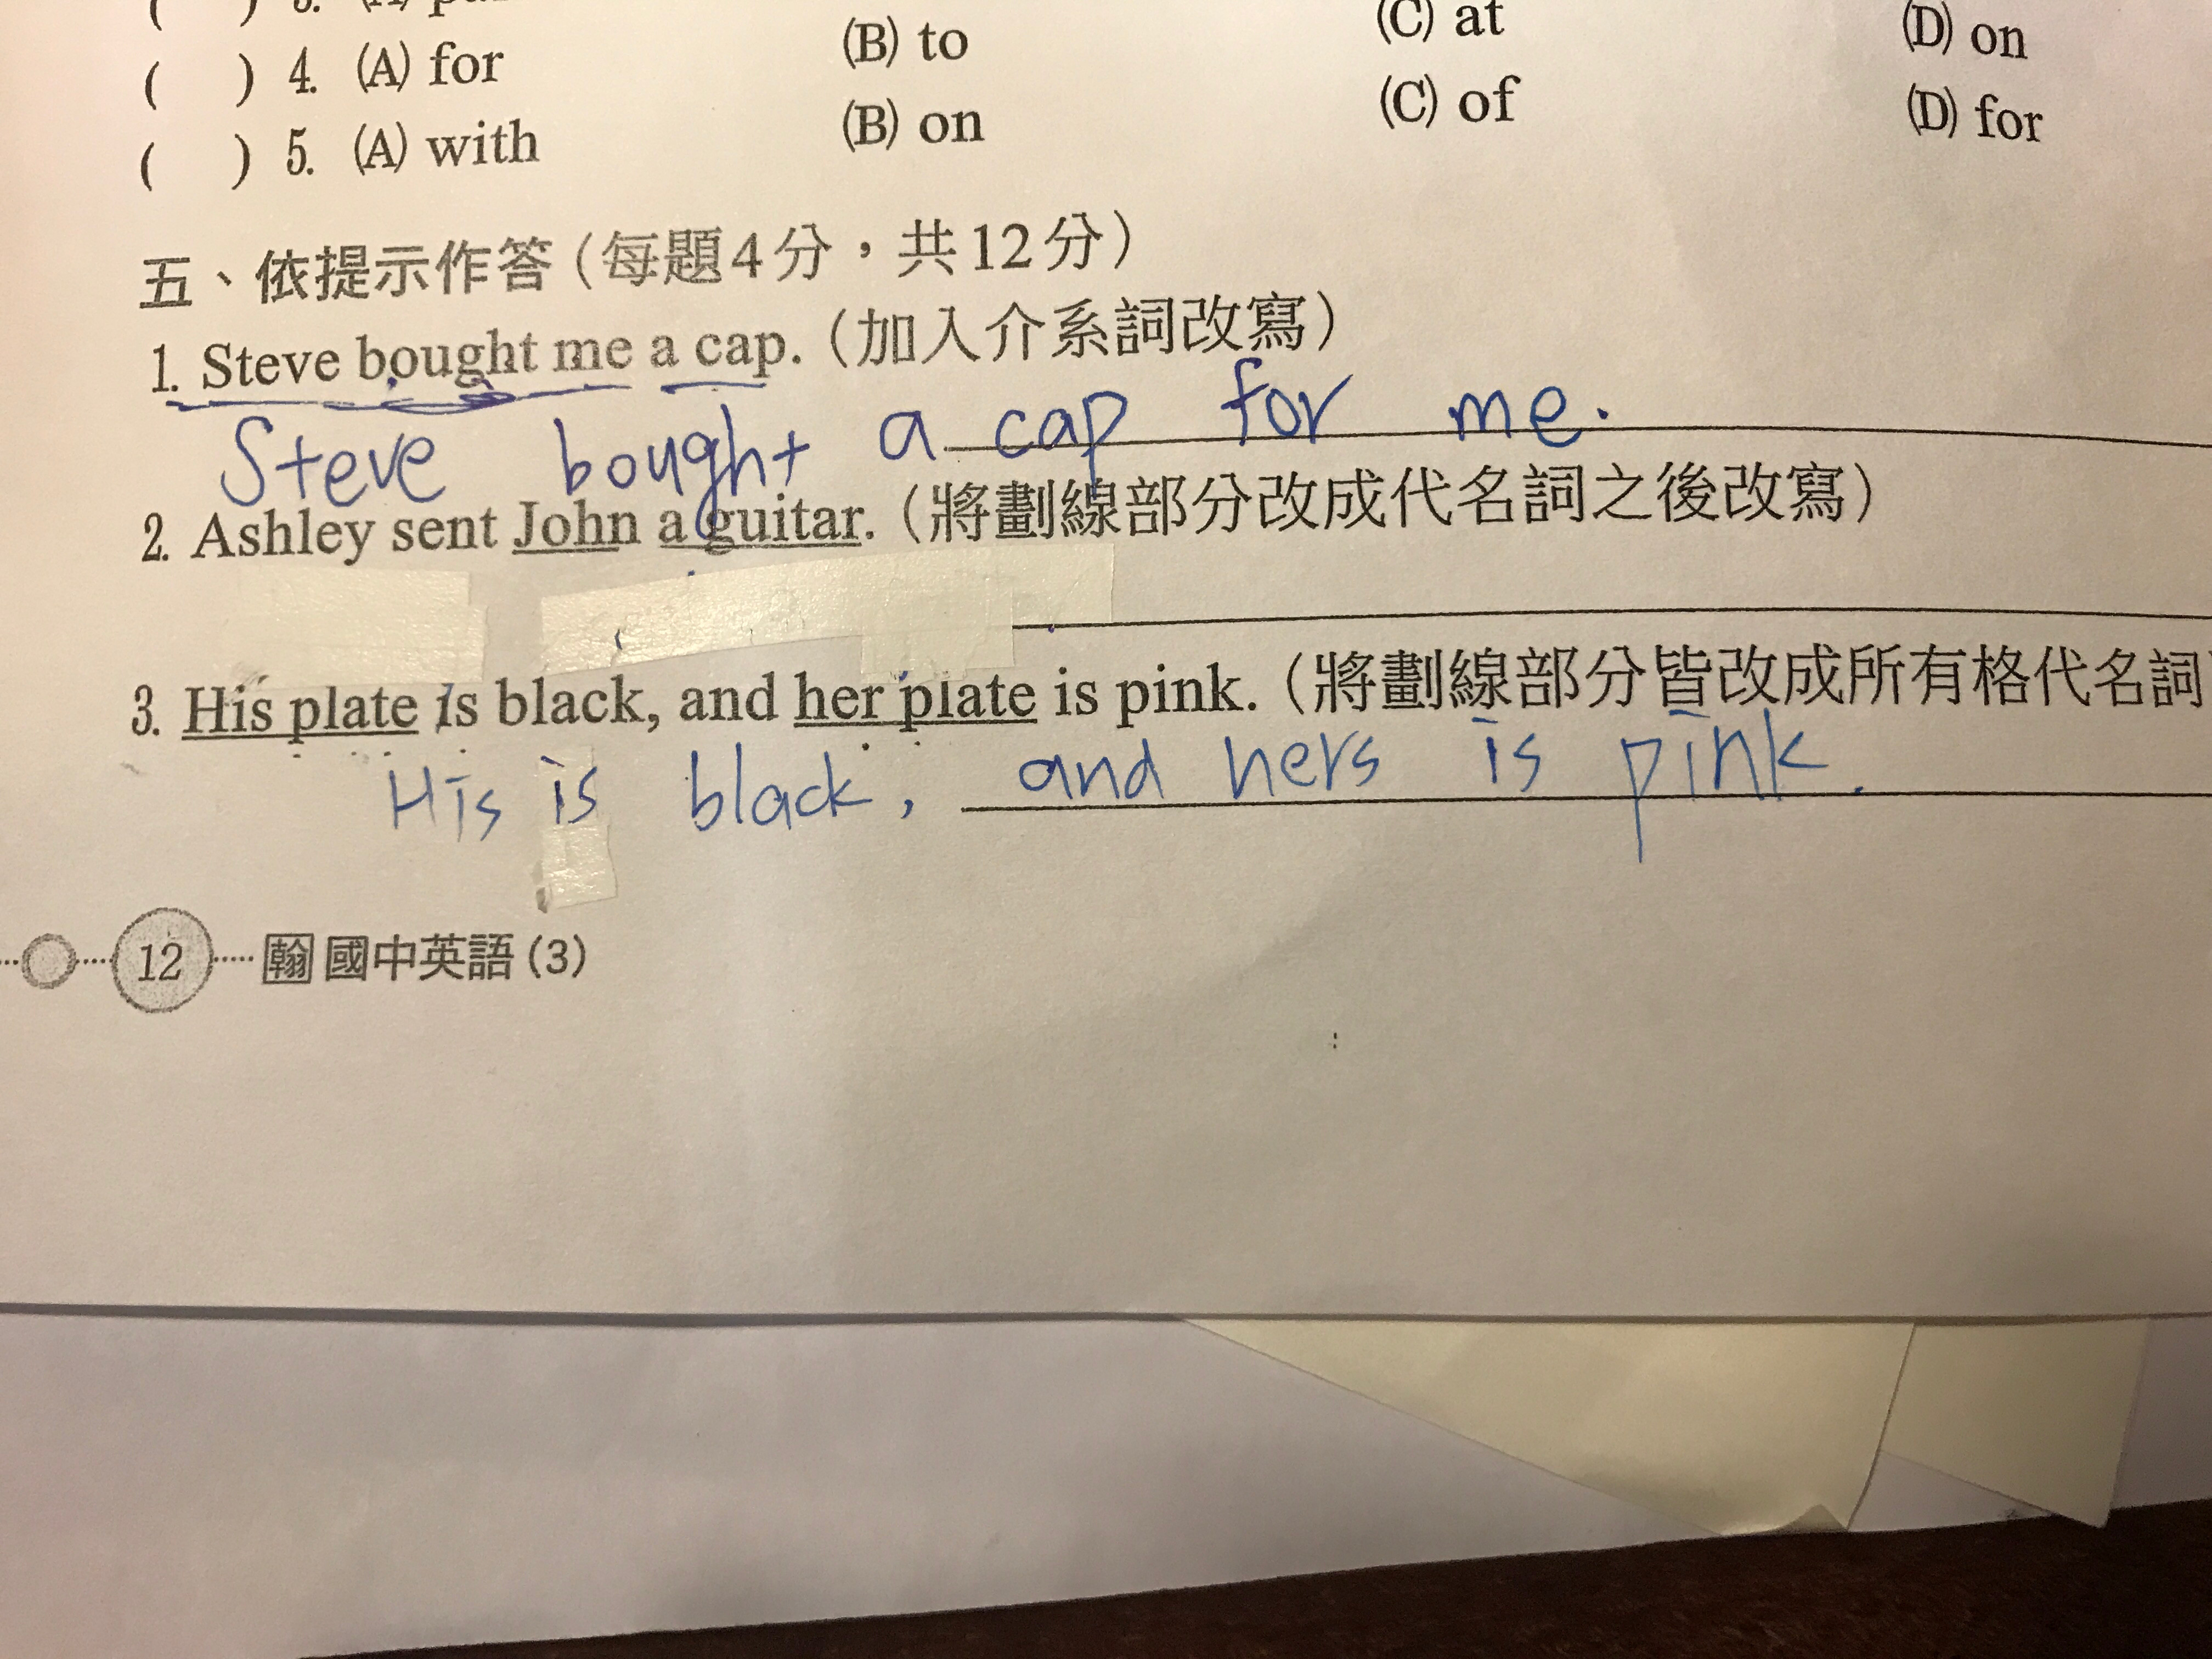 ( ) 4. (A) for (B) to (C) at (D) on
( ) 5. (A) with (B) on (C) of (D) for
五、依提示作答(每題4分,共12分)
1. Steve bought me a cap. (加入介系詞改寫)
Steve bought a cap for me.
2. Ashley sent John a guitar. (將劃線部分改成代名詞之後改寫)
3. His plate is black, and her plate is pink. (將劃線部分皆改成所有格代名詞)
His is black, and hers is pink.
12 翰 國中英語(3)